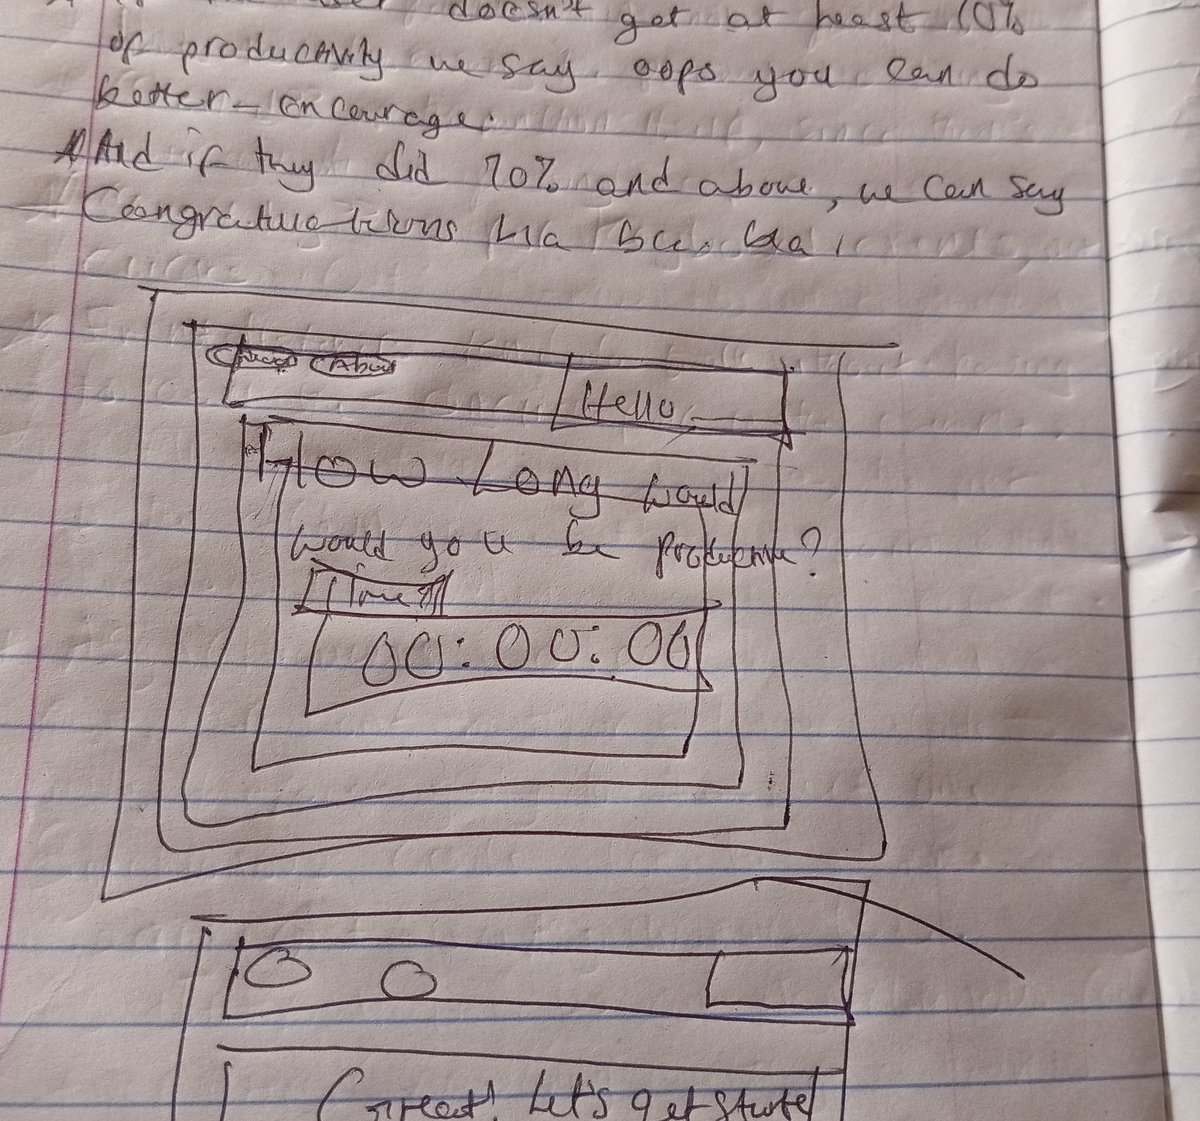 doesn't get at least 10%
of productivity we say oops you can do
better - encourage.
And if they did 70% and above, we can say
Congratulations bla bla bla
About
Hello
How Long would
would you be productive?
Time
00:00:00
Great! Let's get started